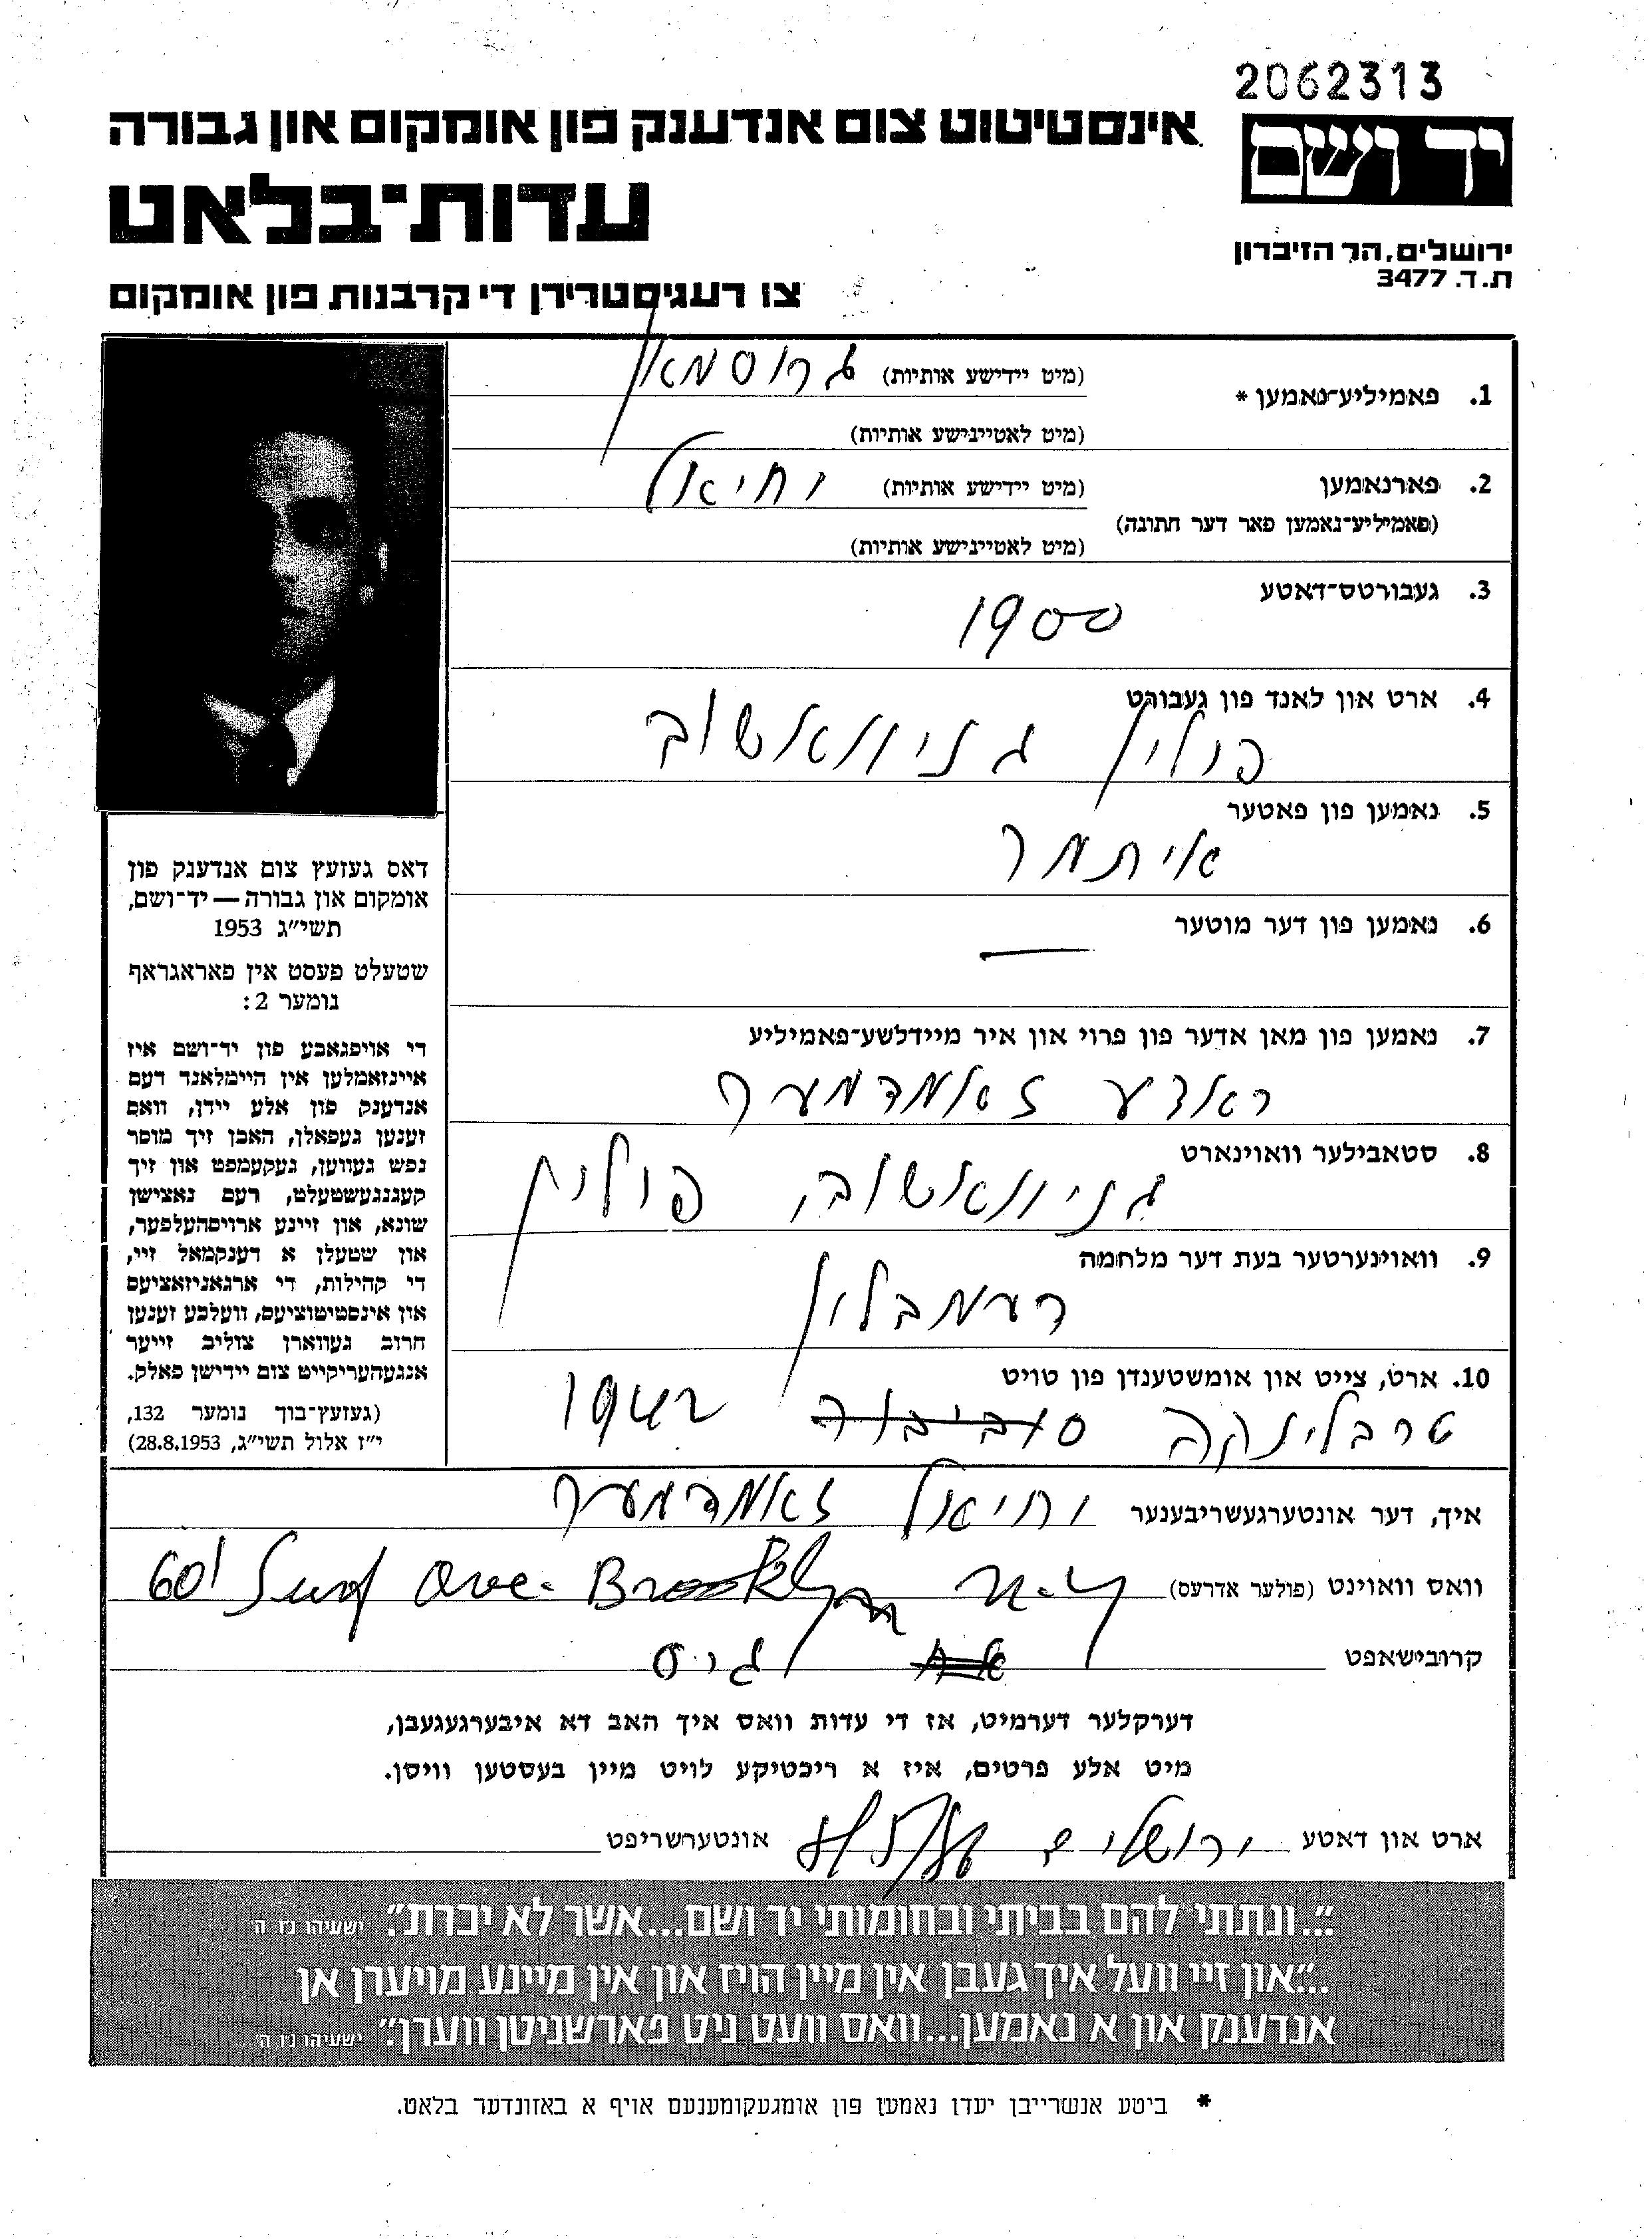 2062313
יד ושם
ירושלים, הר הזיכרון
ת.ד. 3477
אינסטיטוט צום אנדענק פון אומקום און גבורה
עדות־בלאט
צו רעגיסטרירן די קרבנות פון אומקום
1. פאמיליע־נאמען * (מיט יידישע אותיות) גרוסמאן
(מיט לאטיינישע אותיות)
2. פארנאמען (מיט יידישע אותיות) יחיאל
(פאמיליע־נאמען פאר דער חתונה)
(מיט לאטיינישע אותיות)
3. געבורטס־דאטע
1900
4. ארט און לאנד פון געבורט
פולין גניוואשוב
5. נאמען פון פאטער
איתמר
6. נאמען פון דער מוטער
—
7. נאמען פון מאן אדער פון פרוי און איר מיידלשע־פאמיליע
ראדצע זאמדמער
8. סטאבילער וואוינארט
גניוואשוב, פולין
9. וואוינערטער בעת דער מלחמה
דעמבלין
10. ארט, צייט און אומשטענדן פון טויט
טרבלינקה סוביבור 1942
דאס געזעץ צום אנדענק פון
אומקום און גבורה — יד־ושם,
תשי״ג 1953
שטעלט פעסט אין פאראגראף
נומער 2:
די אויפגאבע פון יד־ושם איז
איינזאמלען אין היימלאנד דעם
אנדענק פון אלע יידן, וואס
זענען געפאלן, האבן זיך מוסר
נפש געווען, געקעמפט און זיך
קעגנגעשטעלט, דעם נאצישן
שונא, און זיינע ארויסהעלפער,
און שטעלן א דענקמאל זיי,
די קהילות, די ארגאניזאציעס
און אינסטיטוציעס, וועלכע זענען
חרוב געווארן צוליב זייער
אנגעהעריקייט צום יידישן פאלק.
(געזעץ־בוך נומער 132,
י״ז אלול תשי״ג, 28.8.1953)
איך, דער אונטערגעשריבענער יחיאל זאמדמער
וואס וואוינט (פולער אדרעס) 601 Surf Ave. Brooklyn N.Y.
קרובישאפט גיס
דערקלער דערמיט, אז די עדות וואס איך האב דא איבערגעגעבן,
מיט אלע פרטים, איז א ריכטיקע לויט מיין בעסטען וויסן.
ארט און דאטע ירושלים אונטערשריפט
״...ונתתי להם בביתי ובחומותי יד ושם...אשר לא יכרת״. ישעיהו נ״ו, ה
״...און זיי וועל איך געבן אין מיין הויז און אין מיינע מויערן אן
אנדענק און א נאמען...וואס וועט ניט פארשניטן ווערן״. ישעיהו נ״ו, ה׳
* ביטע אנשרייבן יעדן נאמען פון אומגעקומענעם אויף א באזונדער בלאט.